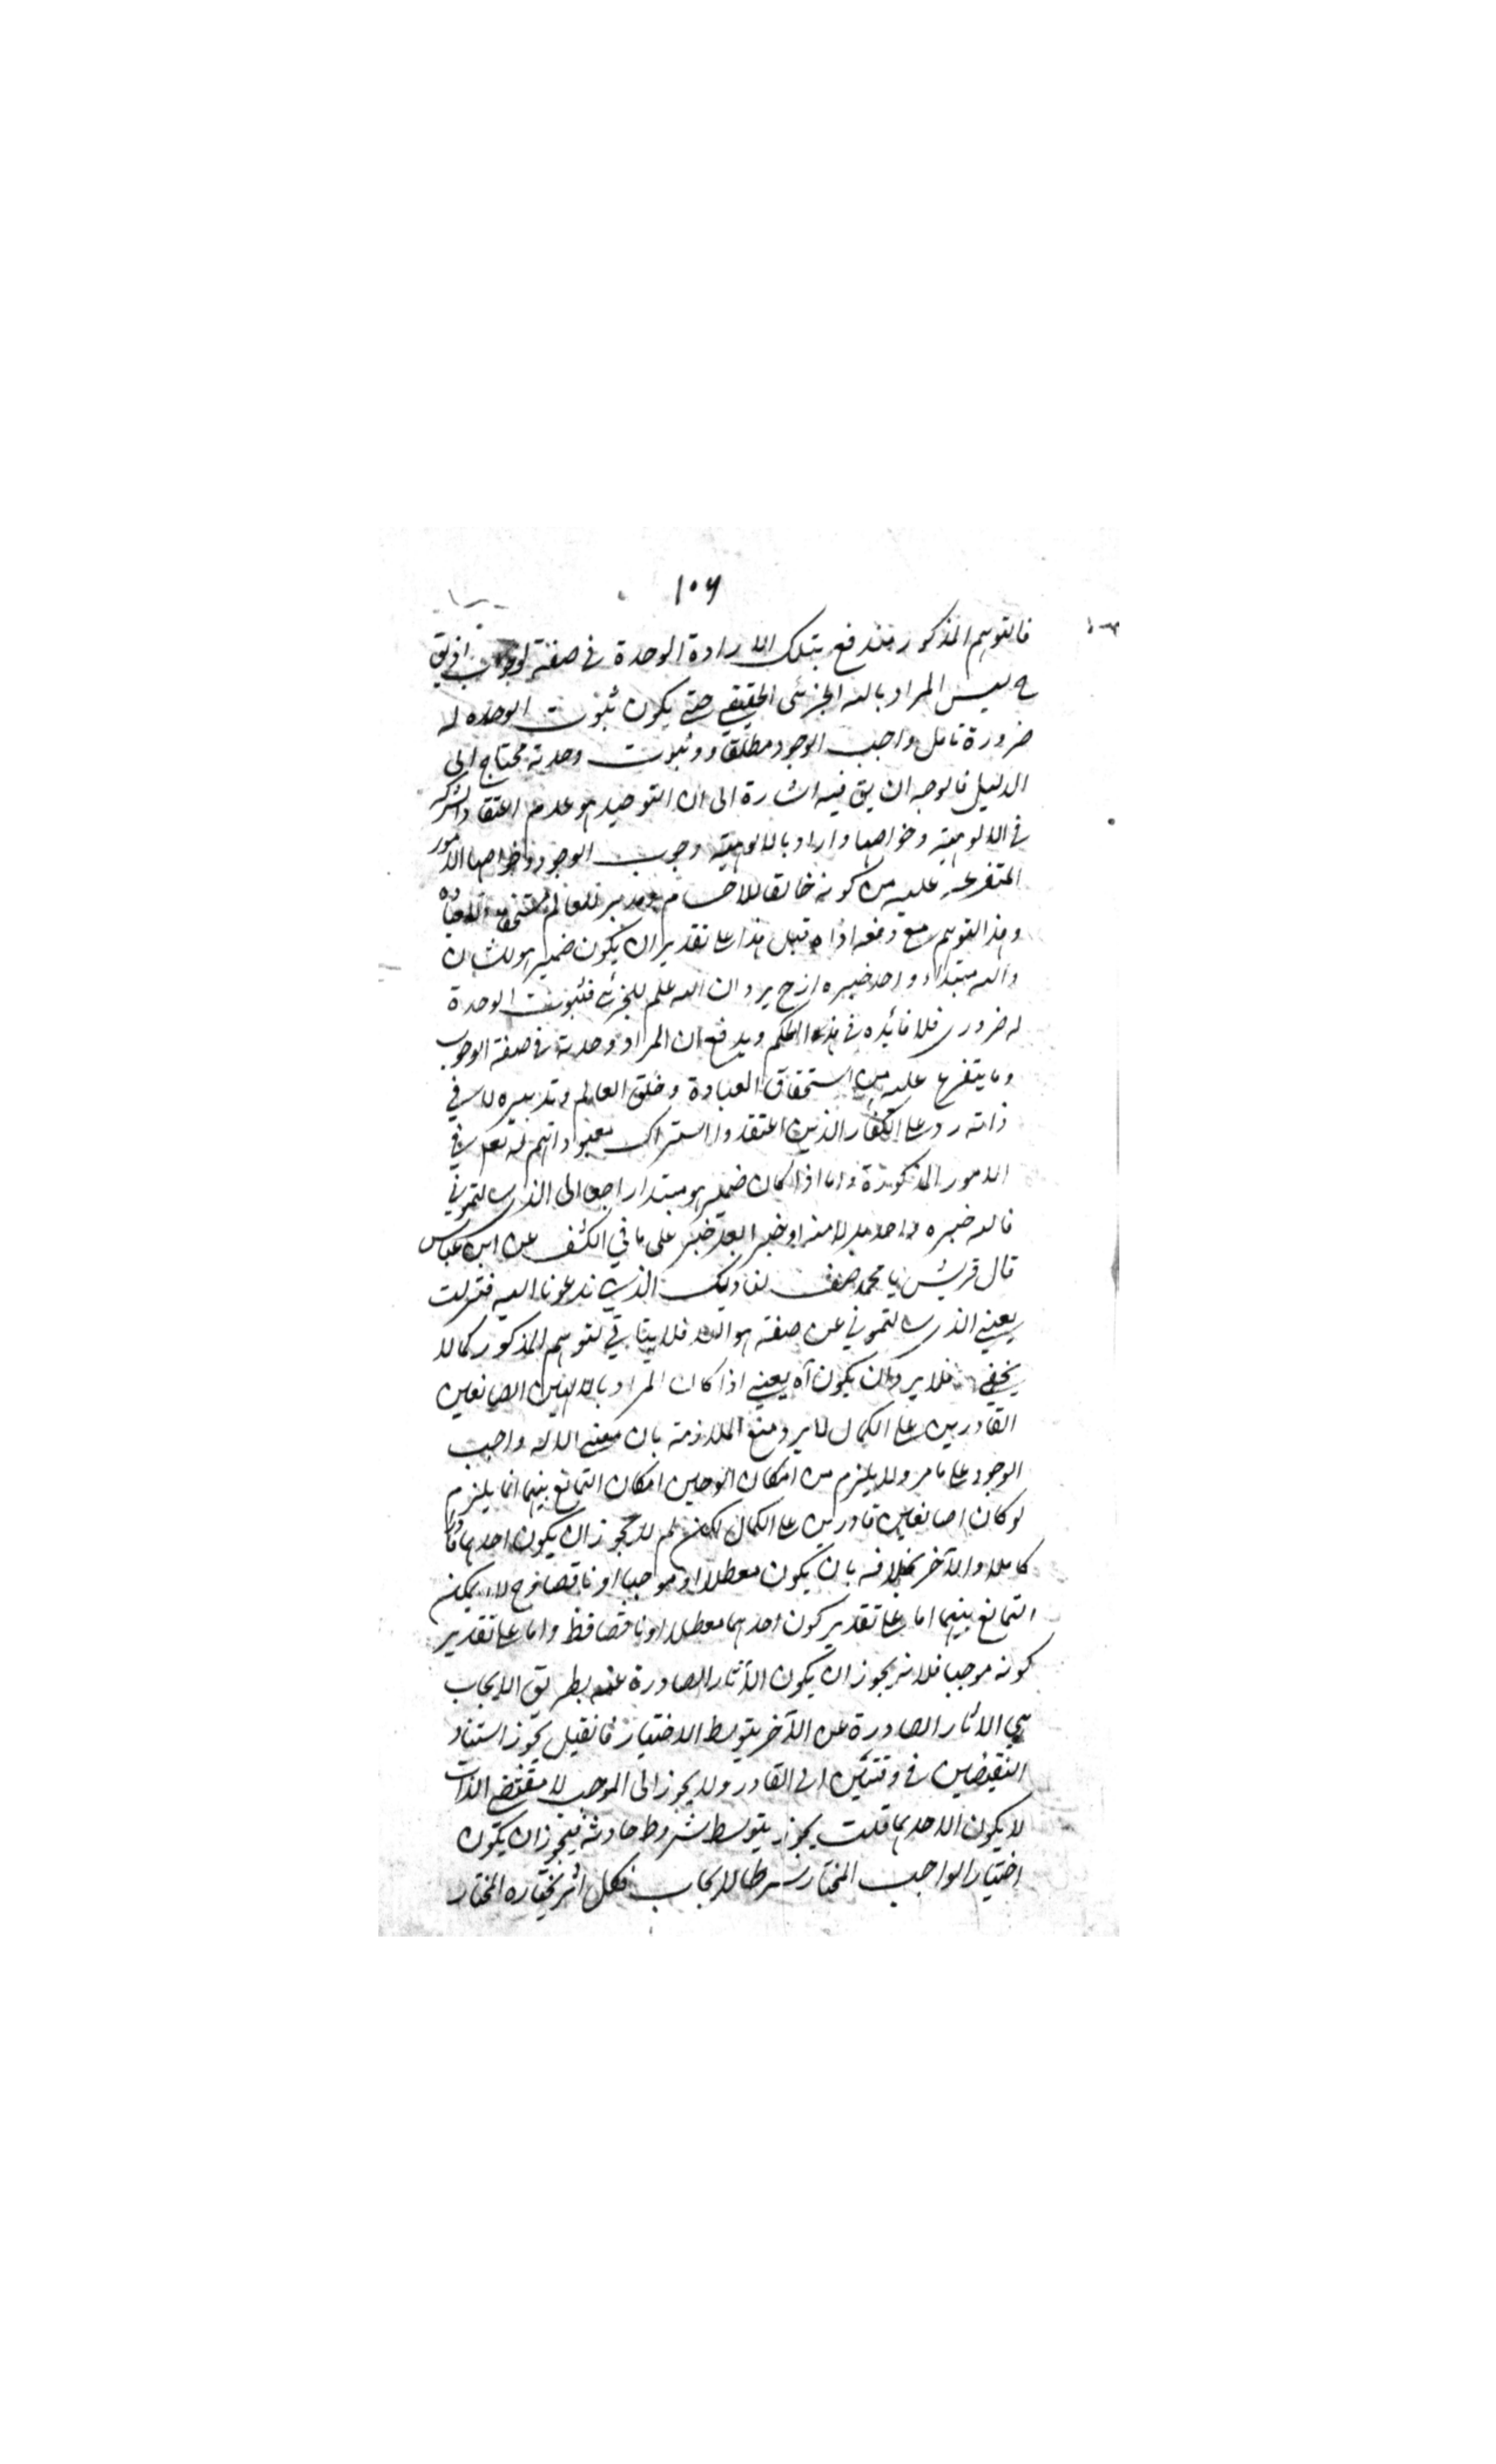 ١٠٦
فالتوهم المذكور مندفع بتلك الارادة الوحدة في صفة الوجوب اذ يق
ح ليس المراد بالله الجزئى الحقيقي حتى يكون ثبوت الوحدة له
ضرورة تامل واجب الوجود مطلقا وثبوت وحدته محتاج الى
الدليل فالوجه ان يق فيه اشارة الى ان التوحيد هو عدم اعتقاد الشركة
في الالوهية وخواصها واراد بالالوهية وجوب الوجود وخواصها الامور
المتفرعة عليه من كونه خالقا للاجسام ومدبر للعالم مستحقا للعبادة
وهذا التوهم مع دفعه اذا قيل هذا على تقدير ان يكون ضمير هو للشان
والله مبتداء واحد خبره اذ ح يرد ان الله علم للجزئي فثبوت الوحدة
له ضروري فلا فائده في هذا الحكم ويدفع ان المراد وحدته في صفة الوجوب
وما يتفرع عليه من استحقاق العبادة وخلق العالم وتدبيره لا في
ذاته رد على الكفار الذين اعتقدوا اشتراك معبوداتهم له تعم في
الامور المذكورة واما اذا كان ضمير هو مبتدا راجعا الى الذي سالتموني
فالله خبره واحد بدلا منه او خبرا بعد خبر على ما في الكشف عن ابن عباس
قال قريش يا محمد صف لنا ربك الذي تدعونا اليه فنزلت
يعني الذي سالتموني عن صفته هو الله فلا يتاتي لتوهم المذكور كما لا
يخفى فلا يرد ان يكون آه يعني اذا كان المراد بالالهين الصانعين
القادرين على الكمال لا يرد منع الملازمة بان معنى الاله واجب
الوجود على ما مر ولا يلزم من امكان الوجبين امكان التمانع بينهما انما يلزم
لو كان صانعين قادرين على الكمال لكن لم لا يجوز ان يكون احدهما قادرا
كاملا والآخر بخلافه بان يكون معطلا او موجبا او ناقصا وح لا يمكن
التمانع بينهما اما على تقدير كون احدهما معطلا او ناقصا فظ واما على تقدير
كونه موجبا فلانه يجوز ان يكون الآثار الصادرة عنه بطريق الايجاب
هي الاثار الصادرة عن الآخر بتوسط الاختيار فان قيل يجوز استناد
النقيضين في وقتين الى القادر ولا يجوز الى الموجب لا مقتضى الذات
لا يكون الا احدهما قلت يجوز بتوسط شروط حادثة فيجوز ان يكون
اختيار الواجب المختار شرطا للايجاب فكل اثر يختاره المختار